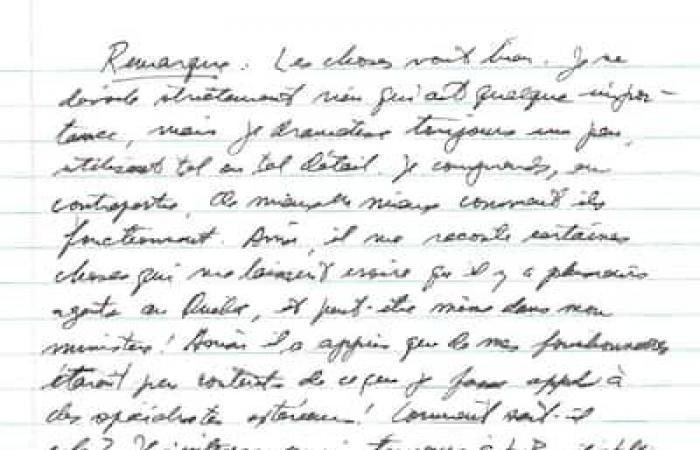 Remarque. Les choses vont bien. Je ne
dévoile strictement rien qui ait quelque impor-
tance, mais je dramatise toujours un peu,
utilisant tel ou tel détail. Je comprends, en
contrepartie, de mieux en mieux comment ils
fonctionnent. Ainsi, il me raconte certaines
choses qui me laissent croire qu'il y a plusieurs
agents au Québec, et peut-être même dans mon
ministère! Ainsi il a appris que de mes fonctionnaires
étaient peu contents de ce que je fasse appel à
des spécialistes extérieurs! Comment sait-il
cela?